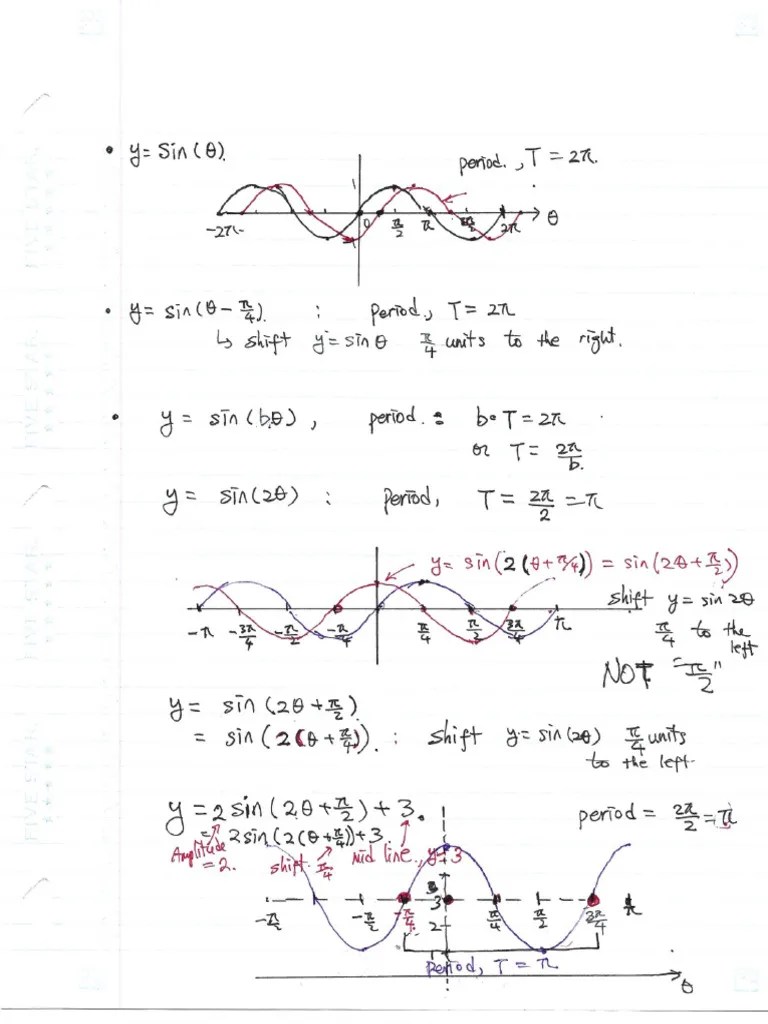 • y = Sin(θ).
period., T = 2π.
1
-2π
0
π/2
π
3π/2
2π
θ
• y = sin(θ - π/4). : period, T = 2π
↳ shift y = sin θ π/4 units to the right.
• y = sin(bθ), period. : b·T = 2π
or T = 2π/b.
y = sin(2θ) : period, T = 2π/2 = π
y = sin(2(θ + π/4)) = sin(2θ + π/2)
shift y = sin 2θ
π/4 to the
left
NOT "π/2"
-π
-3π/4
-π/2
-π/4
π/4
π/2
3π/4
π
y = sin(2θ + π/2)
= sin(2(θ + π/4)). : shift y = sin(2θ) π/4 units
to the left
y = 2sin(2θ + π/2) + 3.
period = 2π/2 = π
= 2sin(2(θ + π/4)) + 3
Amplitude
= 2.
shift π/4
mid line, y = 3
3
2
-π/2
-π/4
π/4
π/2
3π/4
π
period, T = π
θ
FIVE STAR
FIVE STAR
FIVE STAR
FIVE STAR